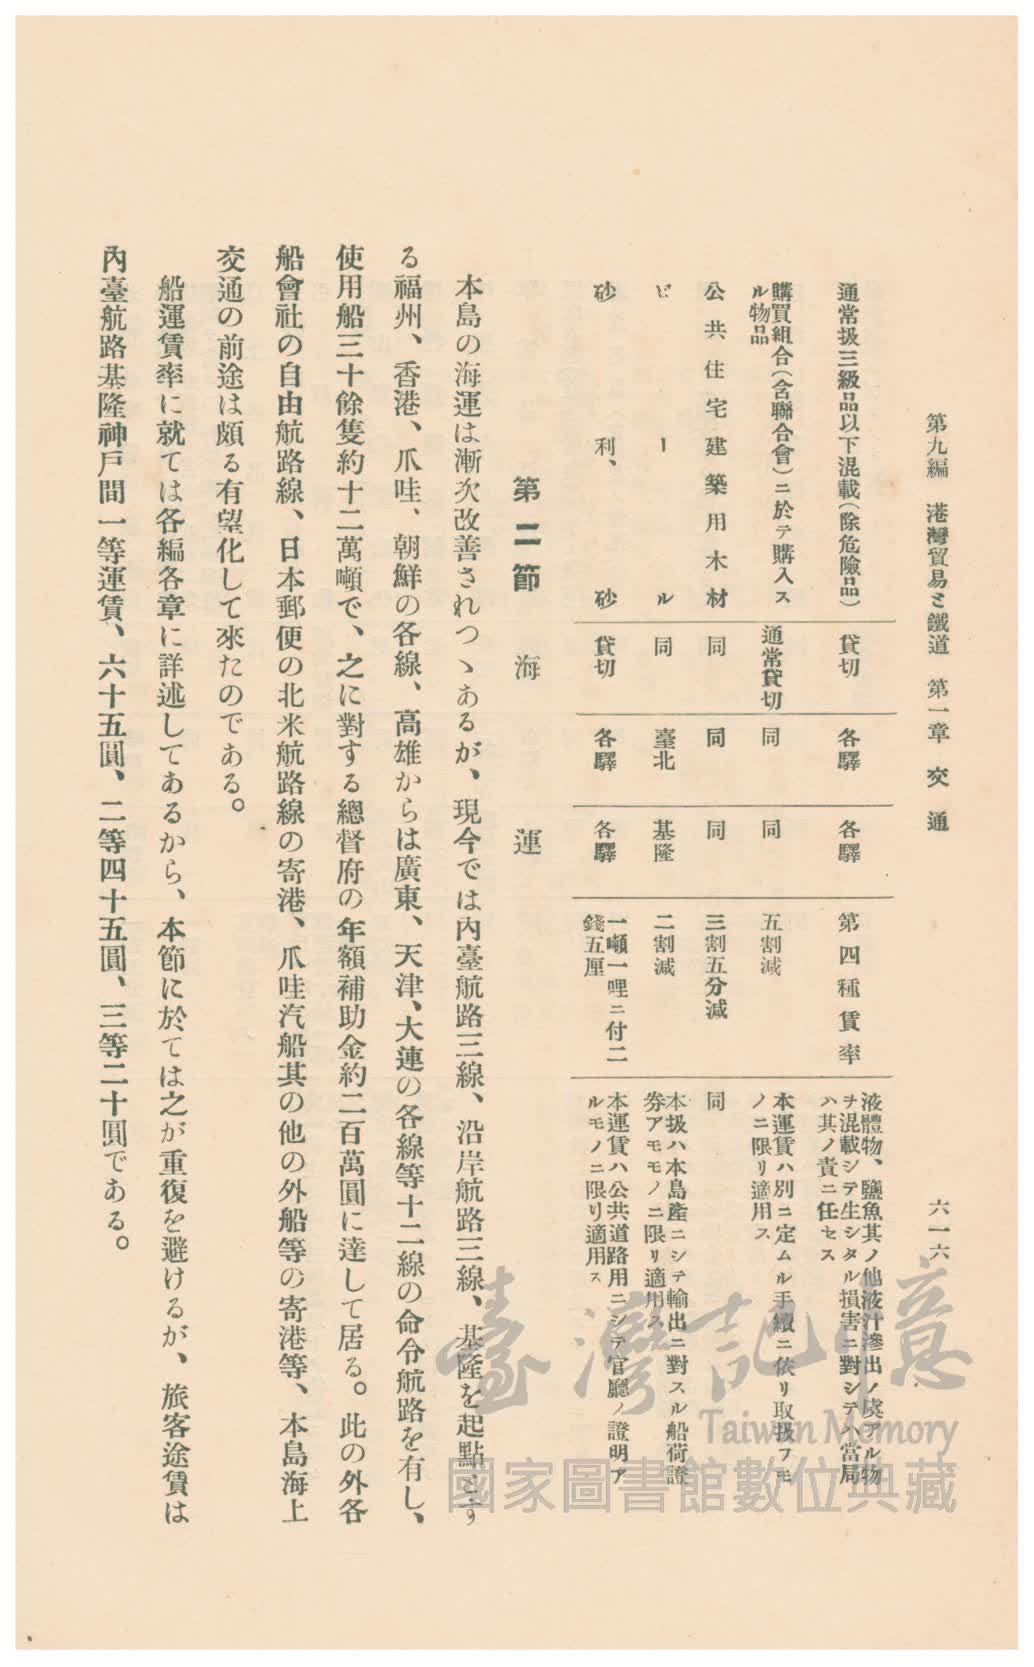 第九編　港灣貿易と鐵道　第一章　交　通
六一六
通常扱三級品以下混載（除危險品）
貸切
各驛
各驛
第四種賃率
液體物、鹽魚其ノ他液汁滲出ノ虞アル物
ヲ混載シテ生シタル損害ニ對シテハ當局
ハ其ノ責ニ任セス
購買組合（含聯合會）ニ於テ購入ス
ル物品
通常貸切
同
同
五割減
本運賃ハ別ニ定ムル手續ニ依リ取扱フモ
ノニ限リ適用ス
公共住宅建築用木材
同
同
同
三割五分減
同
ビール
同
臺北
基隆
二割減
本扱ハ本島產ニシテ輸出ニ對スル船荷證
券アモモノニ限リ適用ス
砂利、砂
貸切
各驛
各驛
一噸一哩ニ付二
錢五厘
本運賃ハ公共道路用ニシテ官廳ノ證明ア
ルモノニ限リ適用ス
第二節　海　運
本島の海運は漸次改善されつゝあるが、現今では內臺航路三線、沿岸航路三線、基隆を起點とす
る福州、香港、爪哇、朝鮮の各線、高雄からは廣東、天津、大連の各線等十二線の命令航路を有し、
使用船三十餘隻約十二萬噸で、之に對する總督府の年額補助金約二百萬圓に達して居る。此の外各
船會社の自由航路線、日本郵便の北米航路線の寄港、爪哇汽船其の他の外船等の寄港等、本島海上
交通の前途は頗る有望化して來たのである。
船運賃率に就ては各編各章に詳述してあるから、本節に於ては之が重復を避けるが、旅客途賃は
內臺航路基隆神戶間一等運賃、六十五圓、二等四十五圓、三等二十圓である。
臺灣記憶
Taiwan Memory
國家圖書館數位典藏